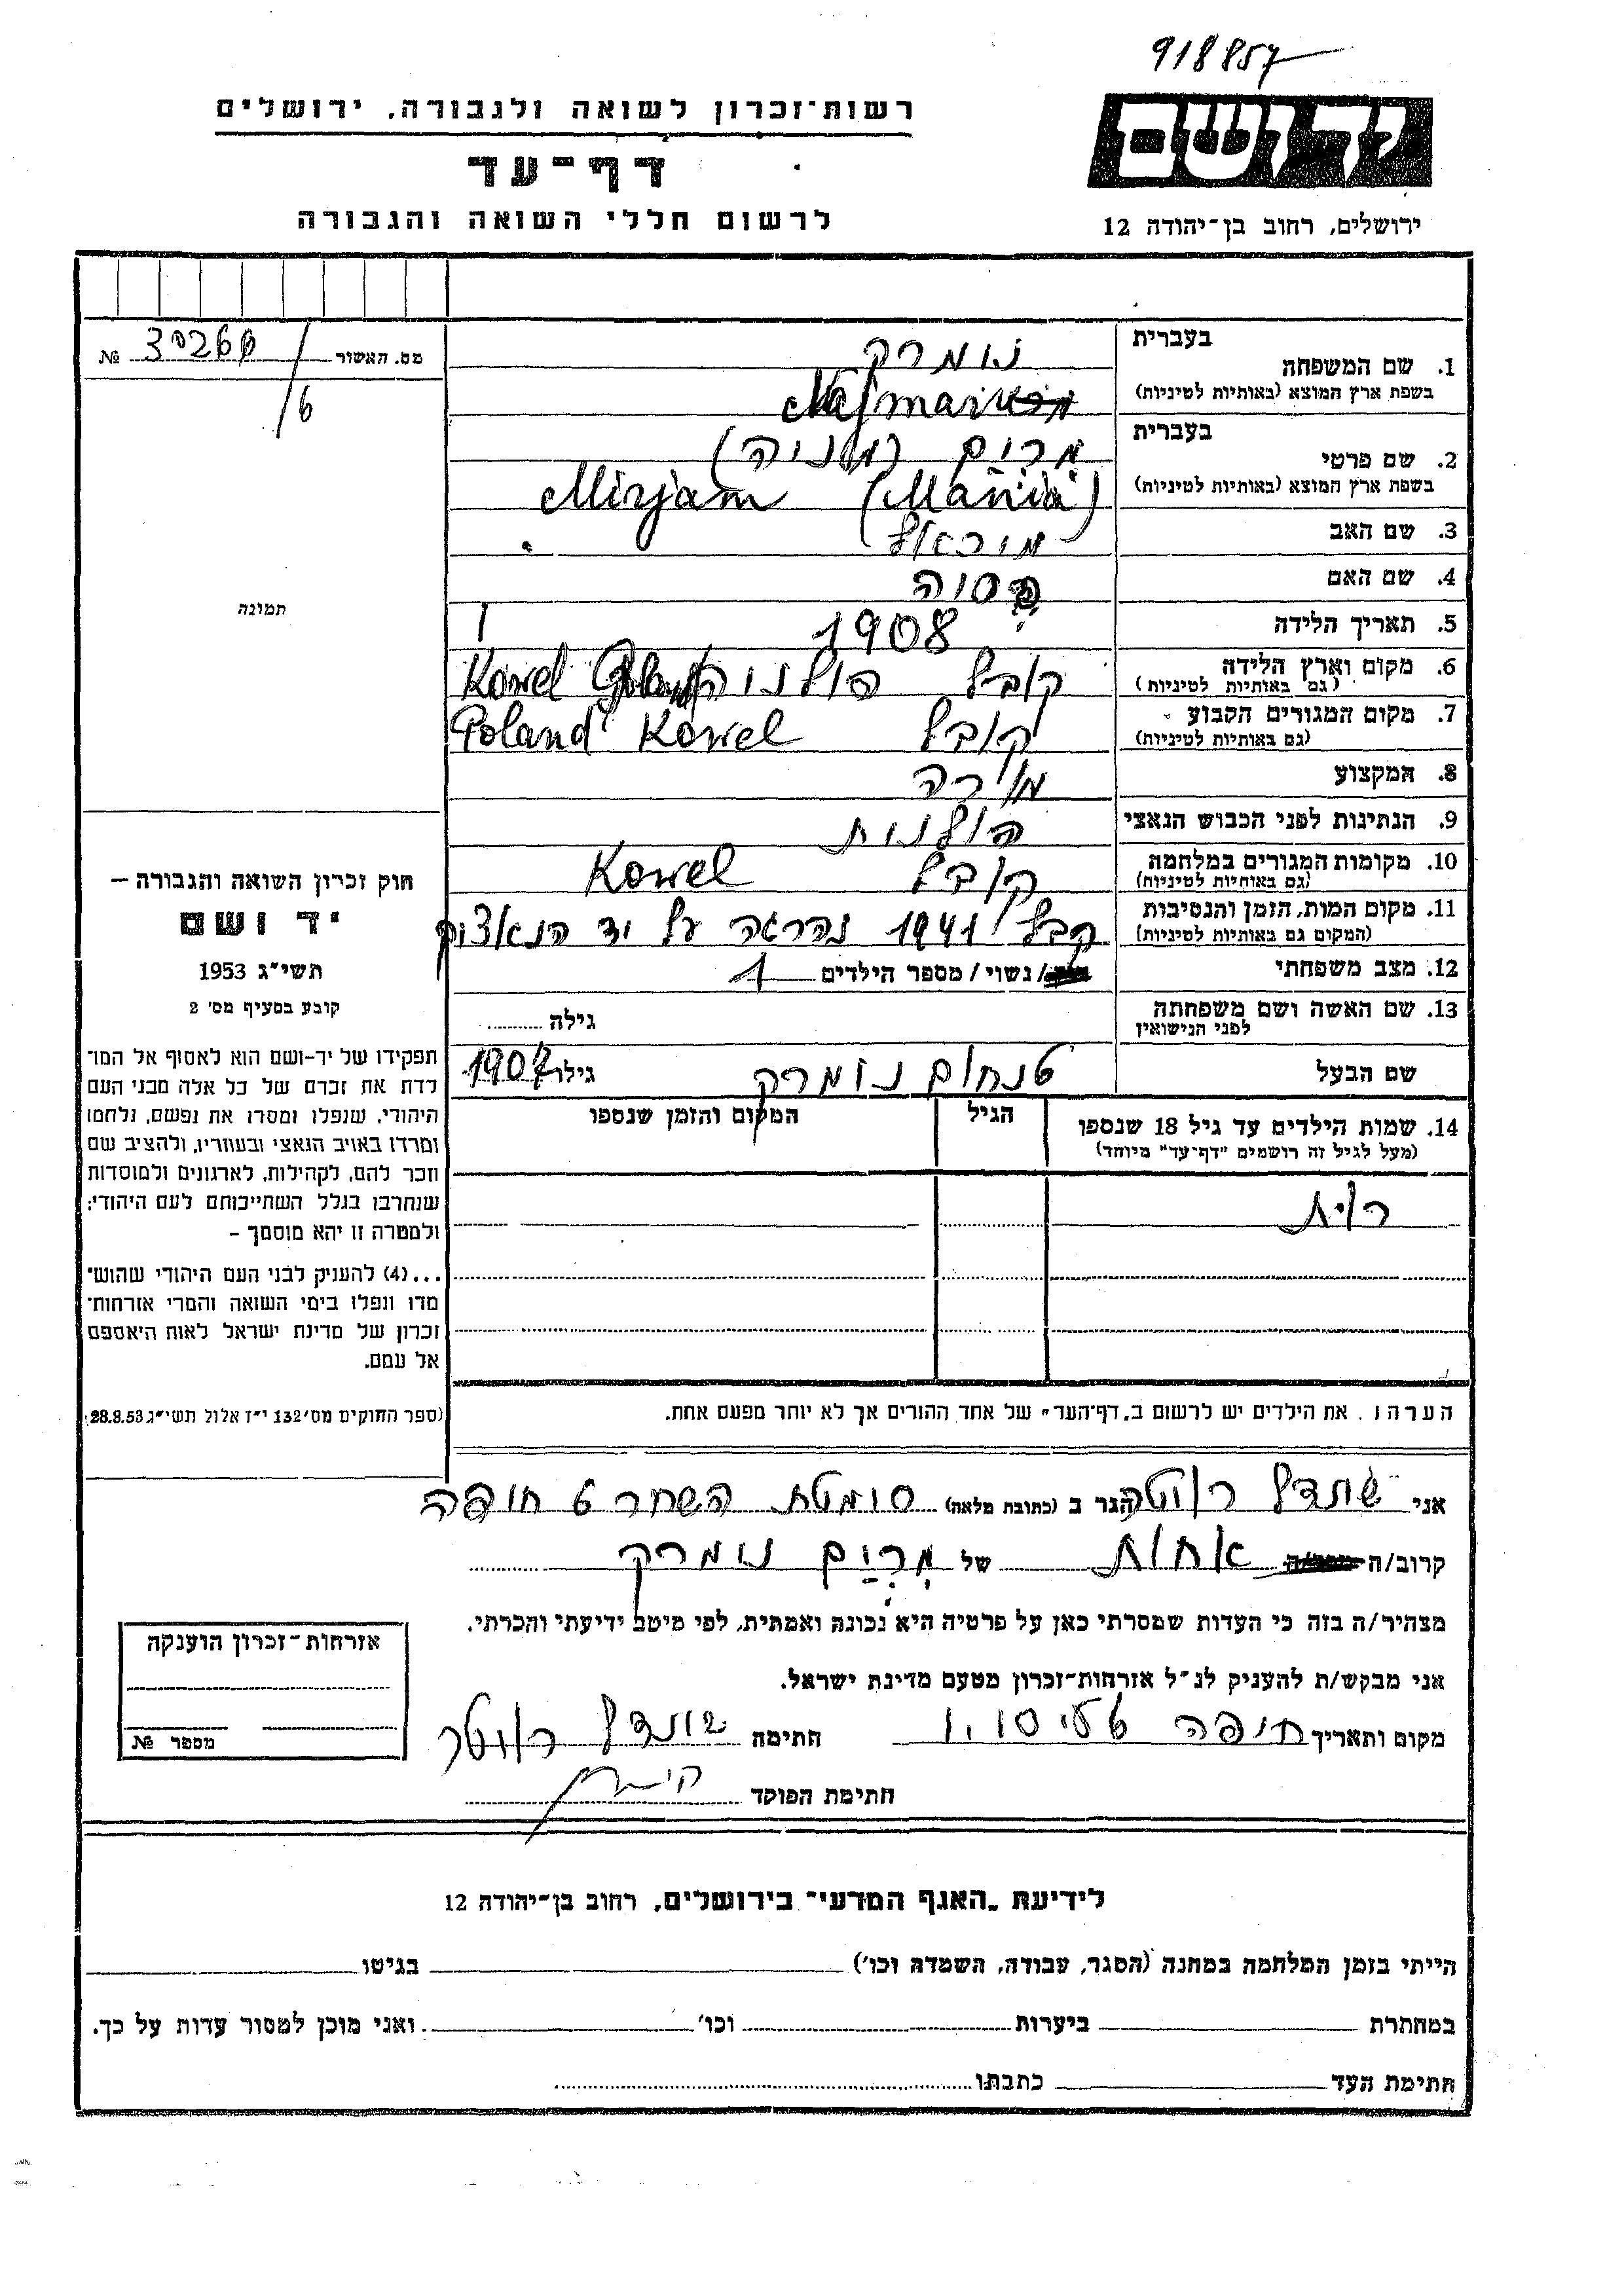 918857
רשות־זכרון לשואה ולגבורה, ירושלים
דף־עד
לרשום חללי השואה והגבורה
יד ושם
ירושלים, רחוב בן־יהודה 12
מס. האשור 30260 №
/6
תמונה
חוק זכרון השואה והגבורה —
יד ושם
תשי"ג 1953
קובע בסעיף מס' 2
תפקידו של יד-ושם הוא לאסוף אל המו־
לדת את זכרם של כל אלה מבני העם
היהודי, שנפלו ומסרו את נפשם, נלחמו
ומרדו באויב הנאצי ובעוזריו, ולהציב שם
וזכר להם, לקהילות, לארגונים ולמוסדות
שנחרבו בגלל השתייכותם לעם היהודי;
ולמטרה זו יהא מוסמך –
...(4) להעניק לבני העם היהודי שהוש־
מדו ונפלו בימי השואה והמרי אזרחות־
זכרון של מדינת ישראל לאות היאספם
אל עמם.
(ספר החוקים מס' 132 י"ז אלול תשי"ג 28.8.53)
בעברית
1. שם המשפחה נומרק
בשפת ארץ המוצא (באותיות לטיניות)
בעברית
2. שם פרטי מרים (מניה)
בשפת ארץ המוצא (באותיות לטיניות) Mirjam (Mania)
3. שם האב מיכאל
4. שם האם
5. תאריך הלידה 1908
6. מקום וארץ הלידה קובל פולניה Kowel
(גם באותיות לטיניות)
7. מקום המגורים הקבוע קובל Kowel Poland
(גם באותיות לטיניות)
8. המקצוע מורה
9. הנתינות לפני הכבוש הנאצי פולנית
10. מקומות המגורים במלחמה קובל Kowel
(גם באותיות לטיניות)
11. מקום המות, הזמן והנסיבות קבל 1941 נהרגה על יד הנאצים
(המקום גם באותיות לטיניות)
12. מצב משפחתי / נשוי / מספר הילדים 1
13. שם האשה ושם משפחתה גילה
לפני הנישואין
שם הבעל תנחום נומרק גילו 1907
14. שמות הילדים עד גיל 18 שנספו הגיל המקום והזמן שנספו
(מעל לגיל זה רושמים "דף־עד" מיוחד)
רות
הערה ו. את הילדים יש לרשום ב"דף־העד" של אחד ההורים אך לא יותר מפעם אחת.
אני הגר ב (כתובת מלאה) סומטת השחר 6 חיפה
קרוב/ה אחות של מרים נומרק
מצהיר/ה בזה כי העדות שמסרתי כאן על פרטיה היא נכונה ואמתית, לפי מיטב ידיעתי והכרתי.
אני מבקש/ת להעניק לנ"ל אזרחות־זכרון מטעם מדינת ישראל.
מקום ותאריך חיפה חתימה
חתימת הפוקד
אזרחות־זכרון הוענקה
מספר №
לידיעת "האגף המדעי" בירושלים, רחוב בן־יהודה 12
הייתי בזמן המלחמה במחנה (הסגר, עבודה, השמדה וכו') בגיטו
במחתרת ביערות וכו' ואני מוכן למסור עדות על כך.
חתימת העד כתבתו